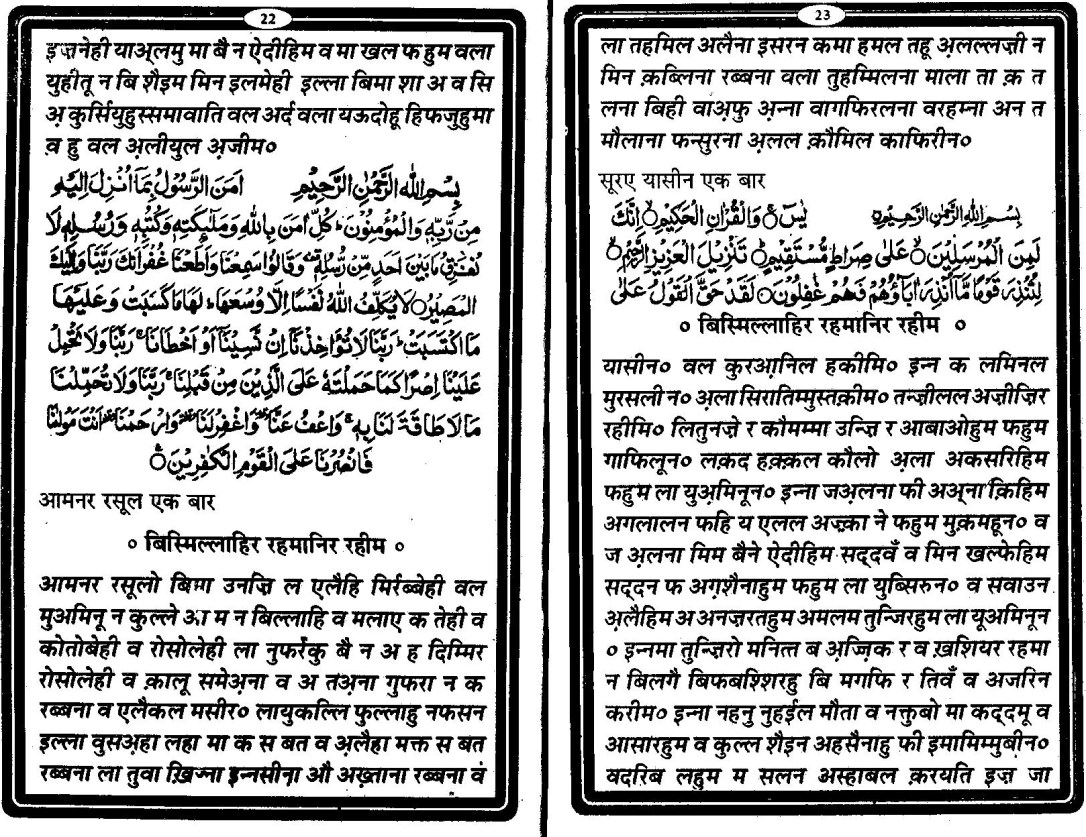 22
इज़नेही याअ़्लमु मा बै न ऐदीहिम व मा खल फ हुम वला
युहीतू न बि शैइम मिन इलमेही इल्ला बिमा शा अ व सि
अ़ कुर्सियुहुस्समावाति वल अर्द वला यऊदोहू हिफजुहुमा
व़ हु वल अ़लीयुल अ़जीम०
بِسْمِ اللهِ الرَّحْمٰنِ الرَّحِيْمِ اٰمَنَ الرَّسُوْلُ بِمَآ اُنْزِلَ اِلَيْهِ
مِنْ رَّبِّهٖ وَالْمُؤْمِنُوْنَ ؕ كُلٌّ اٰمَنَ بِاللهِ وَمَلٰٓئِكَتِهٖ وَكُتُبِهٖ وَرُسُلِهٖ لَا
نُفَرِّقُ بَيْنَ اَحَدٍ مِّنْ رُّسُلِهٖ وَقَالُوْا سَمِعْنَا وَاَطَعْنَا غُفْرَانَكَ رَبَّنَا وَاِلَيْكَ
الْمَصِيْرُ○ لَا يُكَلِّفُ اللهُ نَفْسًا اِلَّا وُسْعَهَا ؕ لَهَا مَا كَسَبَتْ وَعَلَيْهَا
مَا اكْتَسَبَتْ ؕ رَبَّنَا لَا تُؤَاخِذْنَآ اِنْ نَّسِيْنَآ اَوْ اَخْطَاْنَا ۚ رَبَّنَا وَلَا تَحْمِلْ
عَلَيْنَآ اِصْرًا كَمَا حَمَلْتَهٗ عَلَى الَّذِيْنَ مِنْ قَبْلِنَا ۚ رَبَّنَا وَلَا تُحَمِّلْنَا
مَا لَا طَاقَةَ لَنَا بِهٖ ۚ وَاعْفُ عَنَّا وَاغْفِرْلَنَا وَارْحَمْنَا اَنْتَ مَوْلٰنَا
فَانْصُرْنَا عَلَى الْقَوْمِ الْكٰفِرِيْنَ○
आमनर रसूल एक बार
० बिस्मिल्लाहिर रहमानिर रहीम ०
आमनर रसूलो बिमा उनज़ि ल एलैहि मिर्रब्बेही वल
मुअमिनू न कुल्ले आ म न बिल्लाहि व मलाए क तेही व
कोतोबेही व रोसोलेही ला नुफर्रेकु बै न अ ह दिम्मिर
रोसोलेही व क़ालू समेअ़ना व अ तअ़ना गुफरा न क
रब्बना व एलैकल मसीर० लायुकल्लि फुल्लाहु नफसन
इल्ला वुसअ़हा लहा मा क स बत व अ़लैहा मक्त स बत
रब्बना ला तुवा ख़िज़्ना इन्नसीना औ अख़्ताना रब्बना वं
23
ला तहमिल अलैना इसरन कमा हमल तहू अ़लल्लज़ी न
मिन क़ब्लिना रब्बना वला तुहम्मिलना माला ता क़ त
लना बिही वाअ़फु अ़न्ना वागफिरलना वरहम्ना अन त
मौलाना फन्सुरना अ़लल क़ौमिल काफिरीन०
सूरए यासीन एक बार
بِسْمِ اللهِ الرَّحْمٰنِ الرَّحِيْمِ يٰسٓ ○ وَالْقُرْاٰنِ الْحَكِيْمِ ○ اِنَّكَ
لَمِنَ الْمُرْسَلِيْنَ ○ عَلٰى صِرَاطٍ مُّسْتَقِيْمٍ ○ تَنْزِيْلَ الْعَزِيْزِ الرَّحِيْمِ ○
لِتُنْذِرَ قَوْمًا مَّآ اُنْذِرَ اٰبَآؤُهُمْ فَهُمْ غٰفِلُوْنَ ○ لَقَدْ حَقَّ الْقَوْلُ عَلٰٓى
० बिस्मिल्लाहिर रहमानिर रहीम ०
यासीन० वल कुरआ़निल हकीमि० इन्न क लमिनल
मुरसली न० अ़ला सिरातिम्मुस्तक़ीम० तन्ज़ीलल अज़ीज़िर
रहीमि० लितुनज़े र कौमम्मा उन्ज़ि र आबाओहुम फहुम
गाफिलून० लक़द हक़्क़ल कौलो अ़ला अकसरिहिम
फहुम ला युअ़मिनून० इन्ना जअ़लना फी अअ़्ना क़िहिम
अगलालन फहि य एलल अज़्क़ा ने फहुम मुक़महून० व
ज अ़लना मिम बैने ऐदीहिम सद्दवँ व मिन खल्फेहिम
सद्दन फ अग़शैनाहुम फहुम ला युब्सिरुन० व सवाउन
अ़लैहिम अ अनज़रतहुम अमलम तुन्जिरहुम ला यूअमिनून
० इन्नमा तुन्ज़िरो मनित्त ब अ़ज़्ज़िक र व ख़शियर रहमा
न बिलगै बिफबश्शिरहु बि मगफि र तिवँ व अजरिन
करीम० इन्ना नहनु नुहईल मौता व नक्तुबो मा कद्दमू व
आसारहुम व कुल्ल शैइन अहसैनाहु फी इमामिम्मुबीन०
वदरिब लहुम म सलन अस्हाबल क़रयति इज़ जा